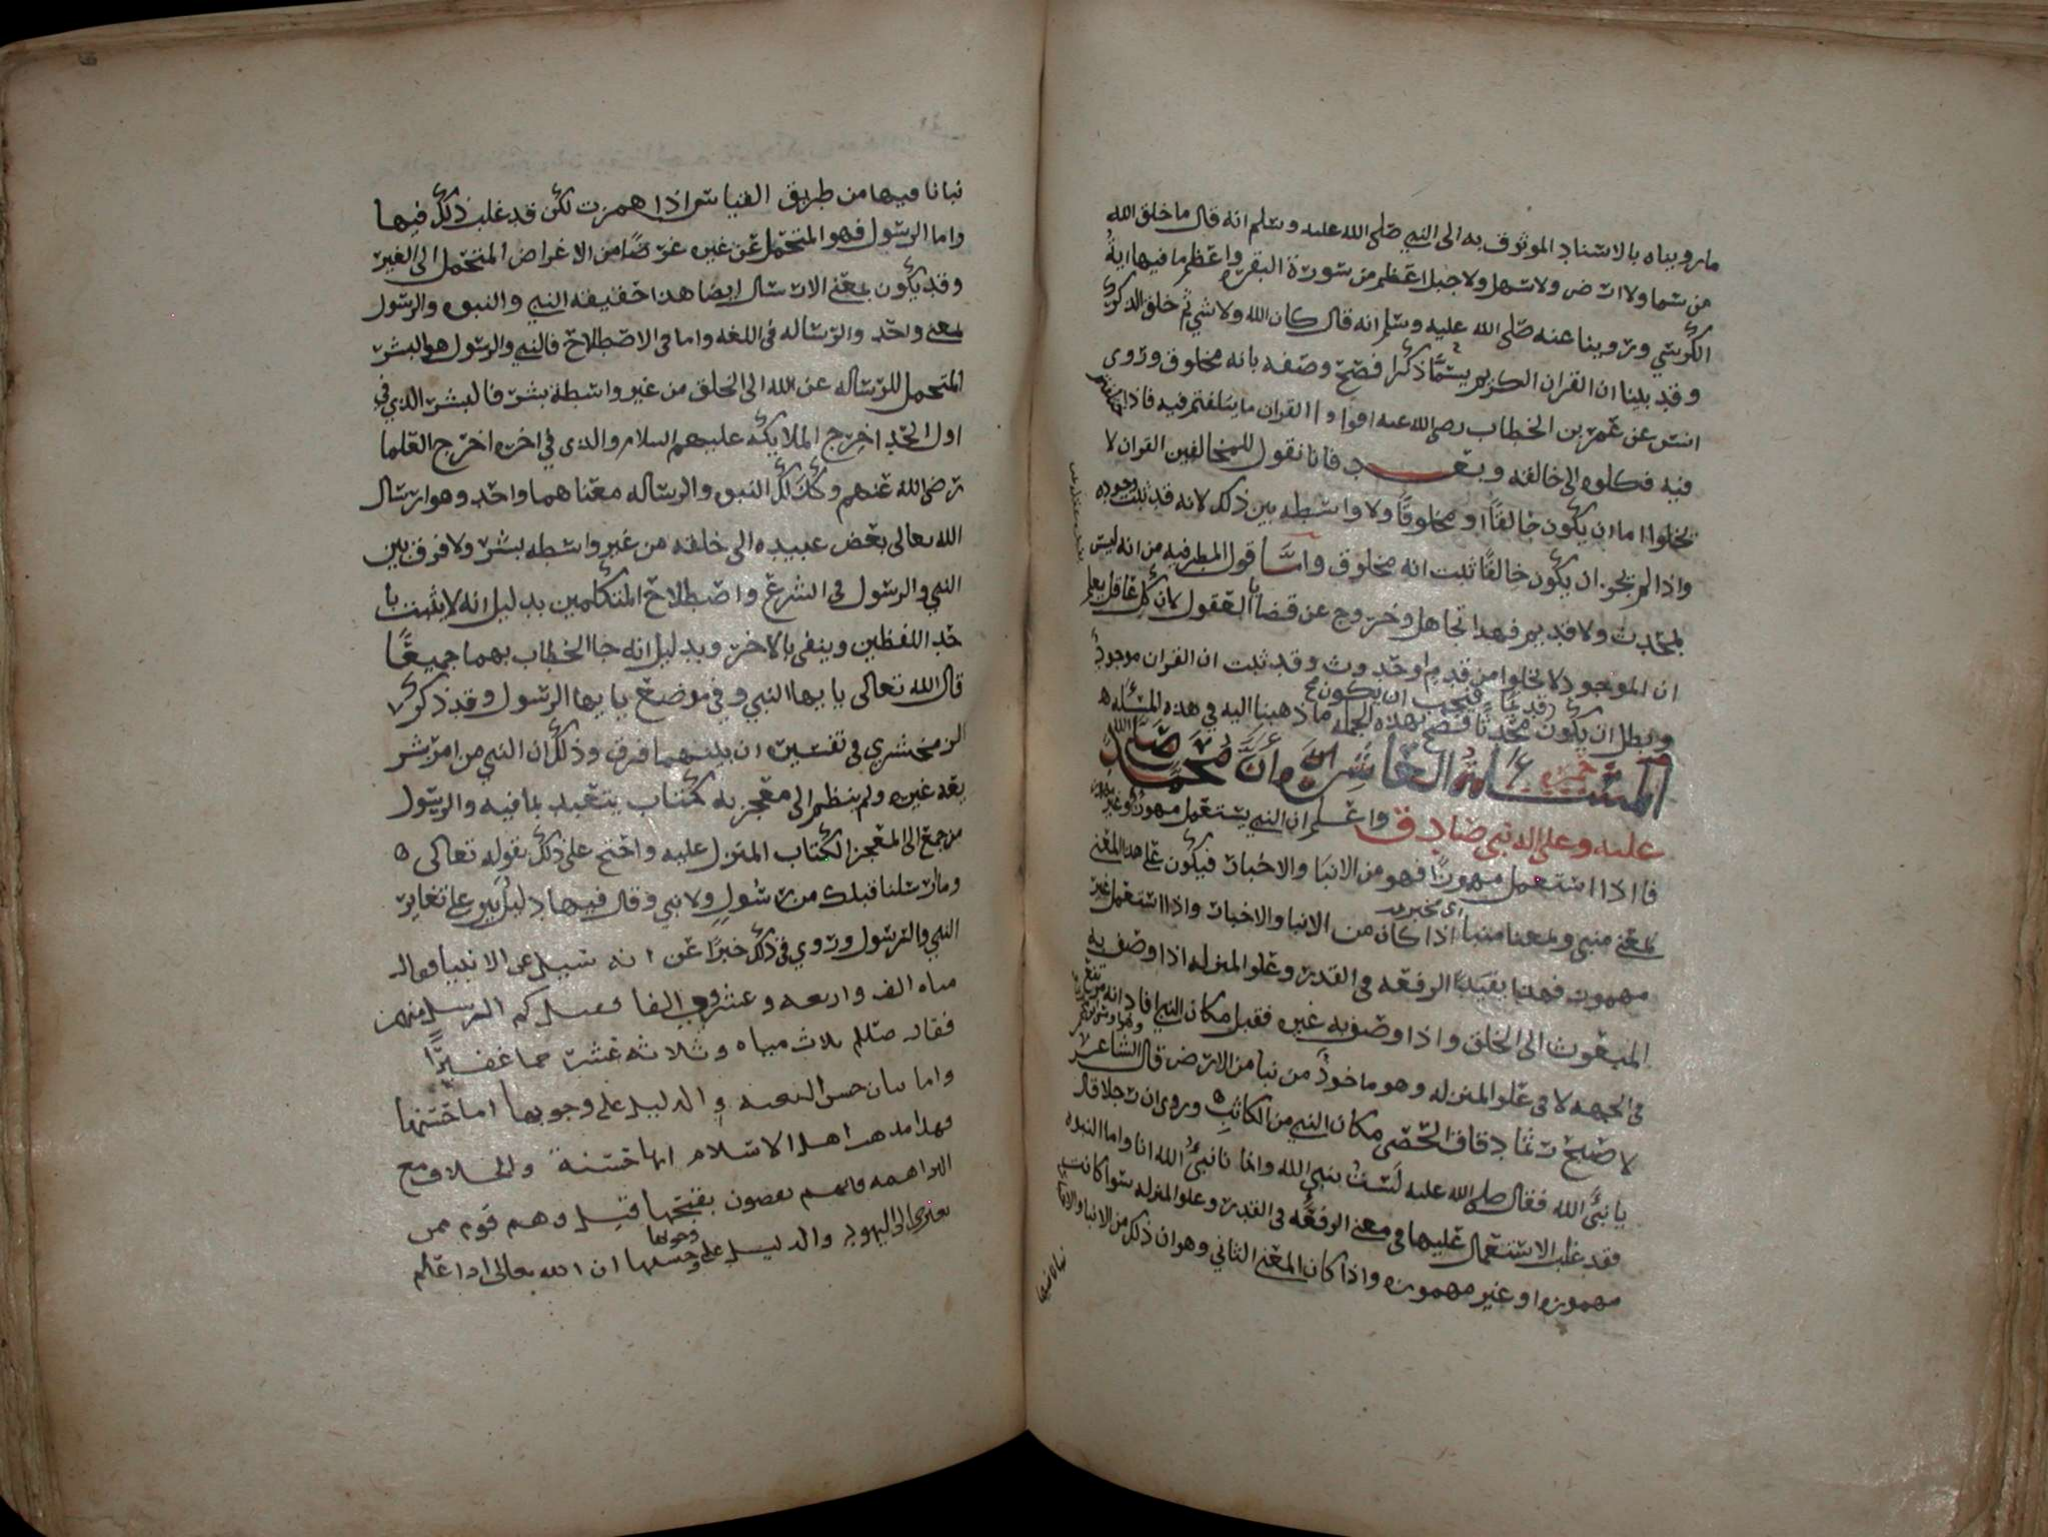 ما رويناه بالاسناد الموثوق به الى النبي صلى الله عليه وسلم انه قال ما خلق الله
من سما ولا ارض ولا سهل ولا جبل اعظم من سورة البقره واعظم ما فيها اية
الكرسي وروينا عنه صلى الله عليه وسلم انه قال كان الله ولا شي ثم خلق الذكر
وقد بينا ان القران الكريم يسما ذكرا فصح وصفه بانه مخلوق وروى
انس عن عمر بن الخطاب رضي الله عنه اقرا وا القران ما يتلفتم فيه فاذا اختلفتم
فيه فكلوه الى خالقه وبعد فانا نقول للمخالفين القران لا
يخلوا اما ان يكون خالقًا او مخلوقًا ولا واسطه بين ذلك لانه قد ثبت وجوده
واذا لم يجز ان يكون خالقًا ثبت انه مخلوق واما قول المطرفيه من انه ليس
بمحدث ولا قديم فهذا تجاهل وخروج عن قضايا العقول لان كل عاقل يعلم
ان الموجود لا يخلوا من قدم او حدوث وقد ثبت ان القران موجود
وبطل ان يكون قديمًا فيجب ان يكون محدثًا فصح بهذه الجمله ما ذهبنا اليه في هذه المسئله
المسئلة الخامسة عشر ان محمد صلى الله
عليه وعلى اله نبي صادق واعلم ان النبي يستعمل مهموزًا وغير مهموز
فاذا استعمل مهموزًا فهو من الانبا والاخبار فيكون على هذا المعنى
بمعنى منبي وبمعنا منبا اي مخبر اذا كان من الانبا والاخبار واذا استعمل غير
مهموز فهذا يفيد الرفعه في القدر وعلو المنزله اذا وصف به
المبعوث الى الخلق واذا وصف به غيره فقيل مكان النبي فاد انه مرتفع
في الجهه لا في علو المنزله وهو ماخوذ من نبا من الارض قال الشاعر
لاصبح رتما دقاق الحصى مكان النبي من الكاثب وروى ان رجلا قال
يا نبيُّ الله فقال صلى الله عليه لست بنبيء الله وانما نا نبيُّ الله انا واما النبوه
فقد غلب الاستعمال عليها في معنى الرفعه في القدر وعلو المنزله سوا كانت
مهموزه او غير مهموزه واذا كان المعنى الثاني وهو ان ذلك من الانبا والاخبار
نبانا فيها من طريق القياس اذا همزت لكن قد غلب ذلك فيها
واما الرسول فهو المتحمل عن غيره غرضًا من الاغراض المتحمل الى الغير
وقد يكون بمعنى الارسال ايضا هذا حقيقه النبي والنبوه والرسول
بمعنى واحد والرساله في اللغه واما في الاصطلاح فالنبي والرسول هو البشر
المتحمل للرساله عن الله الى الخلق من غير واسطة بشر فالبشر الذي في
اول الحد اخرج الملايكه عليهم السلام والذي في اخره اخرج العلما
رضي الله عنهم وكذلك النبوه والرساله معناهما واحد وهو ارسال
الله تعالى بعض عبيده الى خلقه من غير واسطه بشر ولا فرق بين
النبي والرسول في الشرع واصطلاح المتكلمين بدليل انه لا يثبت با
حد اللفظين وينفى بالاخر وبدليل انه جا الخطاب بهما جميعًا
قال الله تعالى يا يها النبي وفي موضع يا يها الرسول وقد ذكر
الزمخشري في تفسيره ان بينهما فرق وذلك ان النبي من امر بشر
يعه غيره ولم ينظم الى معجزه كتاب يتعبد بما فيه والرسول
من جمع الى المعجز الكتاب المنزل عليه واحتج على ذلك بقوله تعالى
وما ارسلنا قبلك من رسول ولا نبي وقال فيها دليل بين على تغاير
النبي والرسول وروي في ذلك خبرًا عن انه سيل عن الانبيا فقال
مايه الف واربعه وعشرون الفا فقيل كم المرسل منهم
فقال صلعم ثلاث مايه وثلاثه عشر جما غفيرًا
واما بيان حسن البعثه والدليل على وجوبها اما حسنها
فهذا مذهب اهل الاسلام انها حسنة والخلاف مع
البراهمه فانهم يقضون بقبحها قيل وهم قوم ممن
يعتزى الى اليهود والدليل على حسنها ووجوبها ان الله تعالى اذا علم